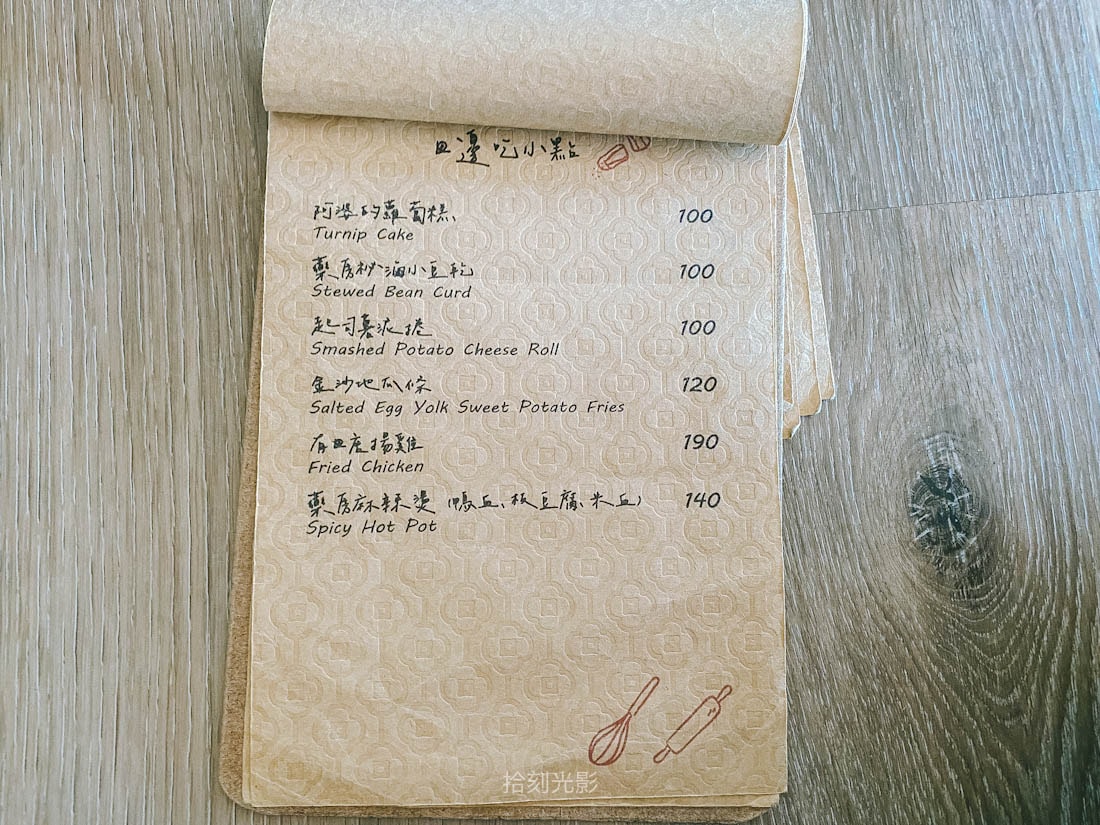 田邊吃小點
阿婆的蘿蔔糕 100
Turnip Cake
藥房秘滷小豆乾 100
Stewed Bean Curd
起司薯泥捲 100
Smashed Potato Cheese Roll
金沙地瓜條 120
Salted Egg Yolk Sweet Potato Fries
有田唐揚雞 190
Fried Chicken
藥房麻辣燙（鴨血、板豆腐、米血） 140
Spicy Hot Pot
拾刻光影